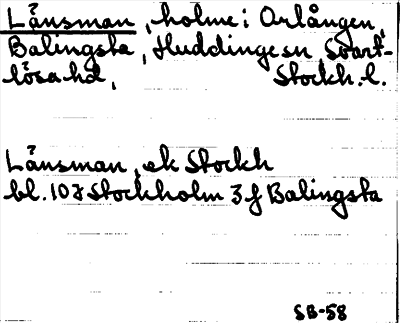 Länsman, holme i Orlången,
Balingsta, Huddinge sn, Svart-
lösa hd, Stockh. l.
Länsman, ek Stockh
bl. 107 Stockholm 3 f Balingsta
SB-58